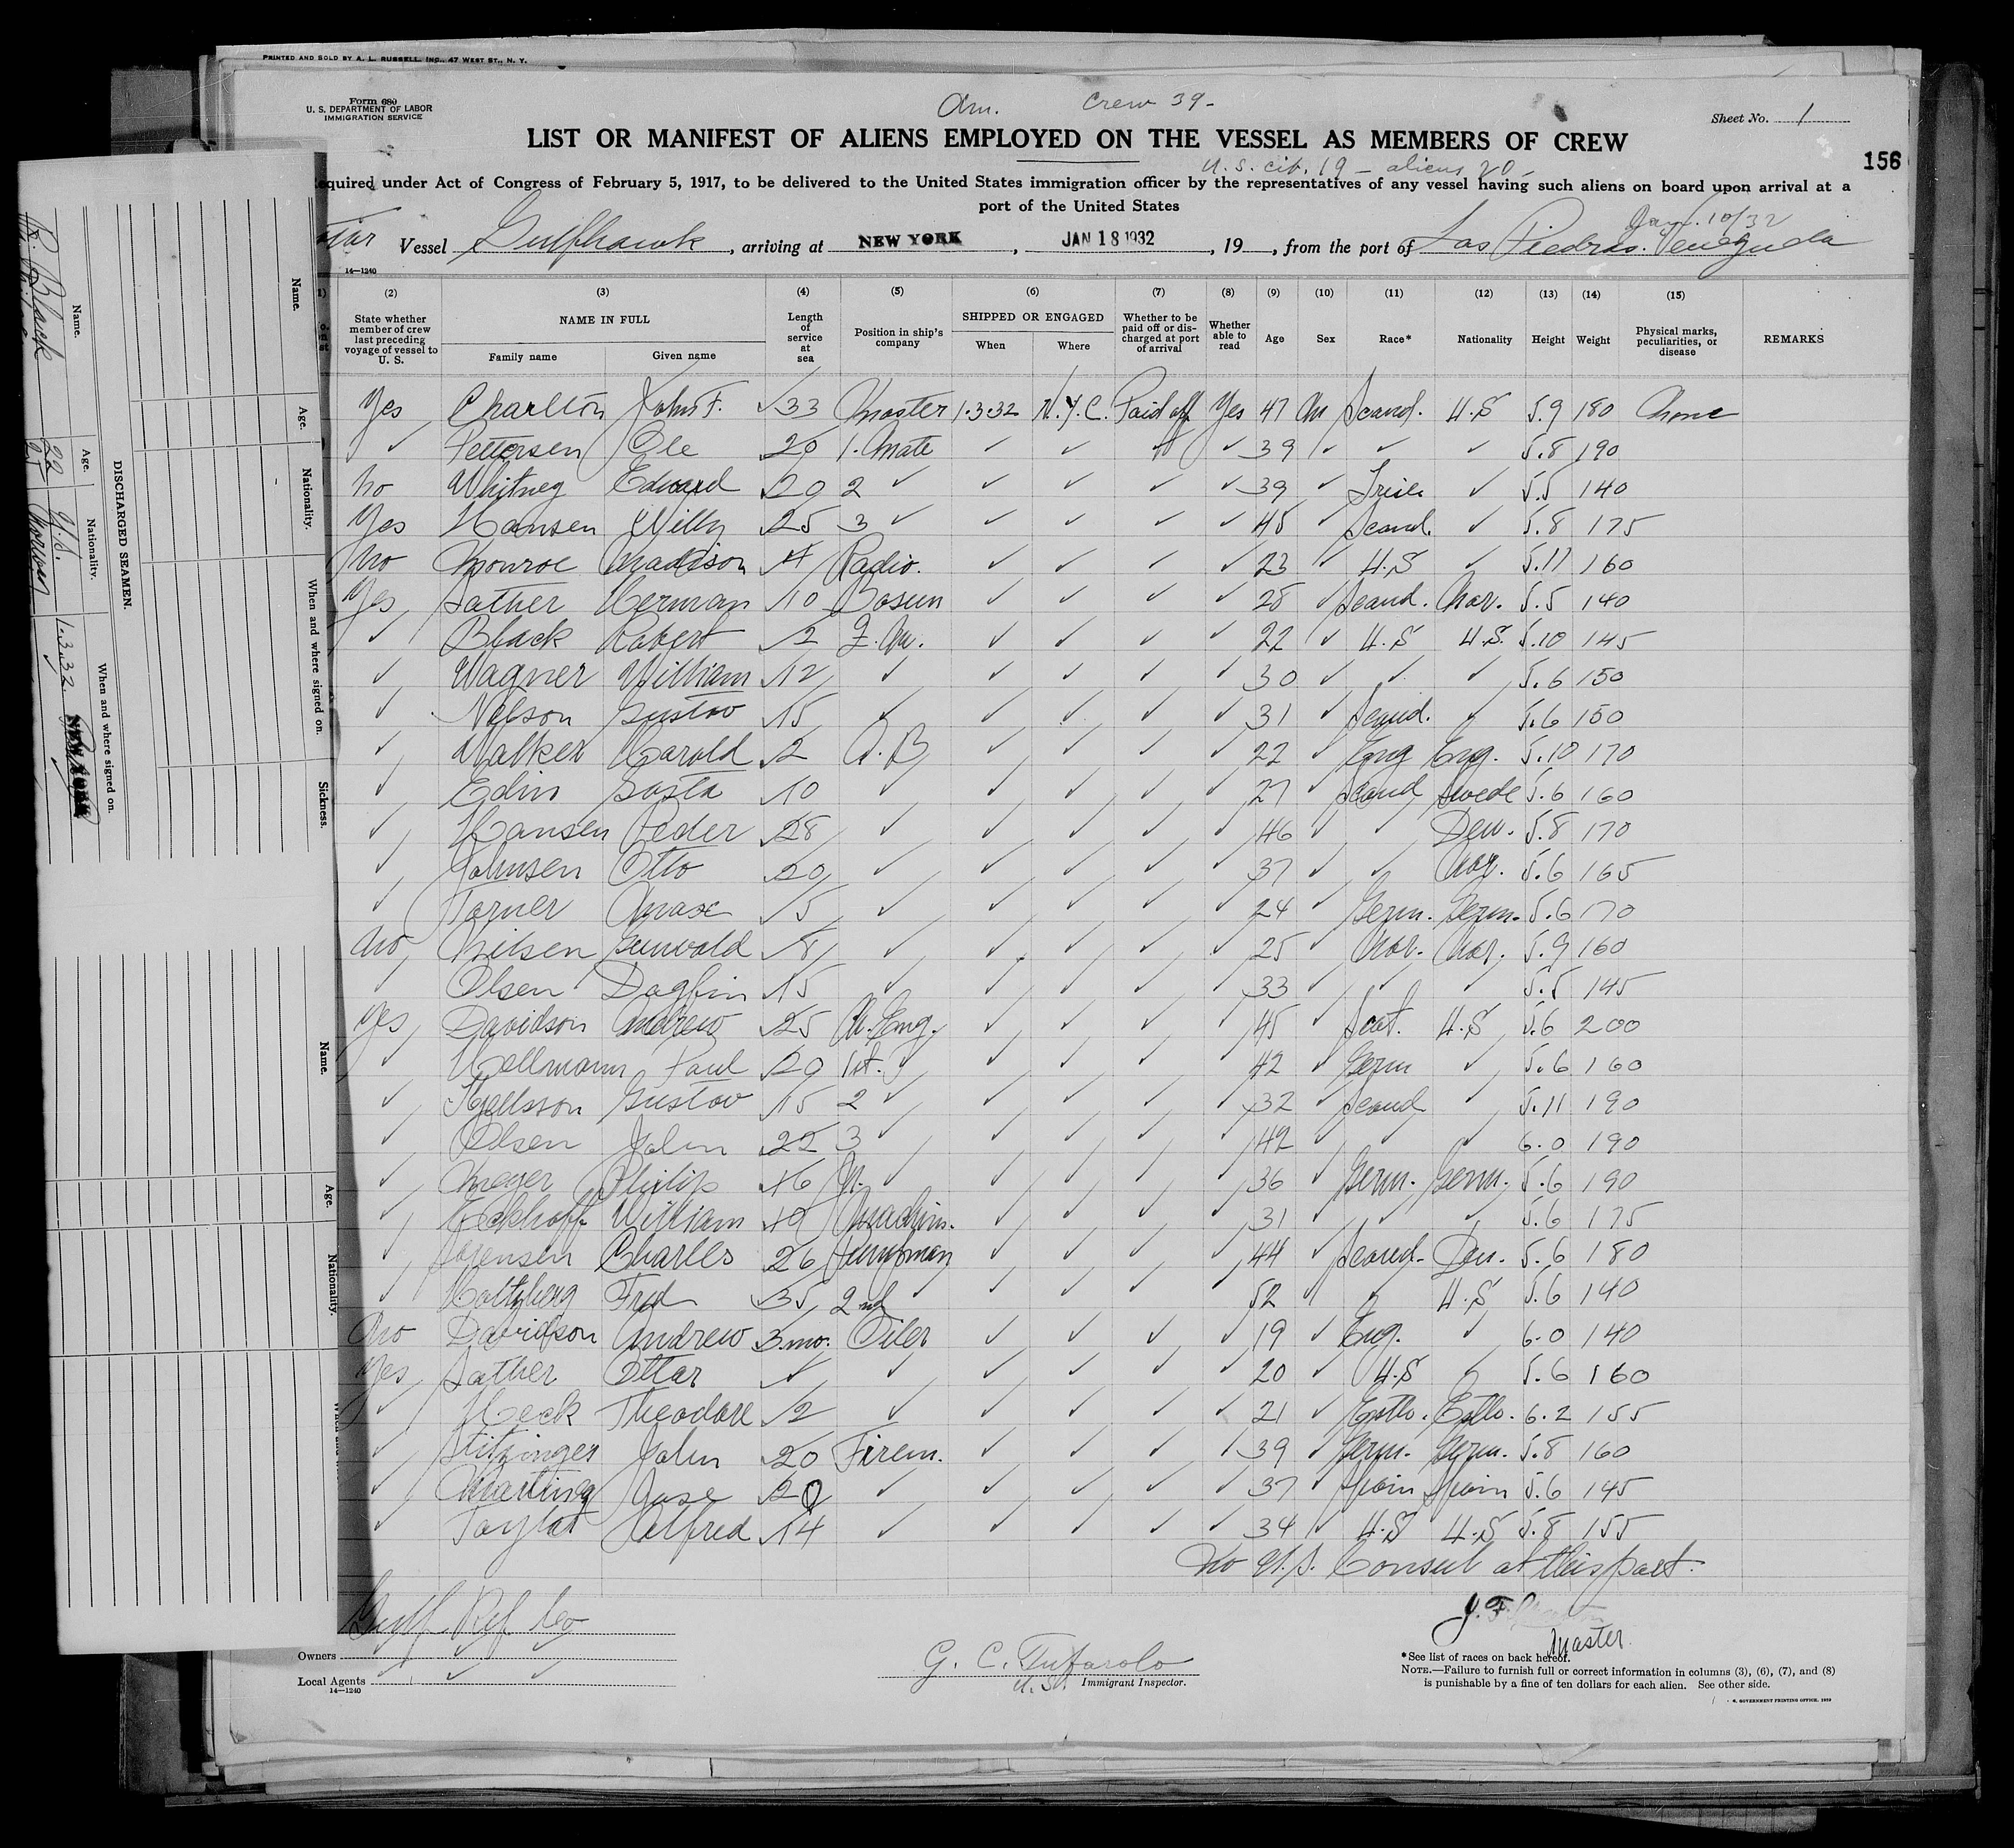 PRINTED AND SOLD BY A. L. RUSSELL, INC., 47 WEST ST., N. Y.
Form 680
U. S. DEPARTMENT OF LABOR
IMMIGRATION SERVICE
Am. Crew 39-
Sheet No. 1
LIST OR MANIFEST OF ALIENS EMPLOYED ON THE VESSEL AS MEMBERS OF CREW
156
U.S. cit. 19 - aliens 20-
equired under Act of Congress of February 5, 1917, to be delivered to the United States immigration officer by the representatives of any vessel having such aliens on board upon arrival at a
port of the United States
Jan. 10/32
Vessel Gulfhawk, arriving at NEW YORK, JAN 18 1932, 19, from the port of Las Piedras. Venezuela
14—1240
(2) (3) (4) (5) (6) (7) (8) (9) (10) (11) (12) (13) (14) (15)
State whether member of crew last preceding voyage of vessel to U. S. NAME IN FULL Family name Given name Length of service at sea Position in ship's company SHIPPED OR ENGAGED When Where Whether to be paid off or discharged at port of arrival Whether able to read Age Sex Race* Nationality Height Weight Physical marks, peculiarities, or disease REMARKS
Yes Charlton John F. ✓33 Master 1.3.32 N.Y.C. Paid off Yes 47 M Scand. U.S 5.9 180 None
✓ Pettersen Ole 20 1. Mate ✓ ✓ ✓ ✓ 39 ✓ ✓ ✓ 5.8 190
No Whitney Edward 20 2 ✓ ✓ ✓ ✓ ✓ 39 ✓ Irish ✓ 5.5 140
Yes Hansen Willy 25 3 ✓ ✓ ✓ ✓ ✓ 45 ✓ Scand. ✓ 5.8 175
No Monroe Madison 4 Radio. ✓ ✓ ✓ ✓ 23 ✓ U.S ✓ 5.11 160
Yes Sather Herman 10 Bosun ✓ ✓ ✓ ✓ 28 ✓ Scand. Nor. 5.5 140
✓ Black Robert 2 Q.M. ✓ ✓ ✓ ✓ 22 ✓ U.S U.S. 5.10 145
✓ Wagner William 12 ✓ ✓ ✓ ✓ ✓ 30 ✓ ✓ ✓ 5.6 150
✓ Nelson Gustav 15 ✓ ✓ ✓ ✓ ✓ 31 ✓ Scand. ✓ 5.6 150
✓ Walker Harold 2 A.B ✓ ✓ ✓ ✓ 22 ✓ Eng Eng. 5.10 170
✓ Edin Gosta 10 ✓ ✓ ✓ ✓ ✓ 27 ✓ Scand Swede 5.6 160
✓ Hansen Peder 28 ✓ ✓ ✓ ✓ ✓ 46 ✓ ✓ Den. 5.8 170
✓ Johnsen Otto 20 ✓ ✓ ✓ ✓ ✓ 37 ✓ ✓ Nor. 5.6 165
✓ Torner Max 5 ✓ ✓ ✓ ✓ ✓ 24 ✓ Germ. Germ. 5.6 170
No Nilsen Gunvald 8 ✓ ✓ ✓ ✓ ✓ 25 ✓ Nor. Nor. 5.9 160
✓ Olsen Dagfin 15 ✓ ✓ ✓ ✓ ✓ 33 ✓ ✓ ✓ 5.5 145
Yes Davidson Andrew 25 Ch.Eng. ✓ ✓ ✓ ✓ 45 ✓ Scot. U.S 5.6 200
✓ Hollmann Paul 20 1st. ✓ ✓ ✓ ✓ ✓ 42 ✓ Germ ✓ 5.6 160
✓ Kjellsson Gustav 15 2 ✓ ✓ ✓ ✓ ✓ 32 ✓ Scand ✓ 5.11 190
✓ Olsen John 22 3 ✓ ✓ ✓ ✓ ✓ 42 ✓ ✓ ✓ 6.0 190
✓ Meyer Philip 16 ✓ ✓ ✓ ✓ ✓ 36 ✓ Germ. Germ. 5.6 190
✓ Eckhoff William 19 Machin. ✓ ✓ ✓ ✓ 31 ✓ ✓ ✓ 5.6 175
✓ Jorensen Charles 26 Pumpman ✓ ✓ ✓ ✓ 44 ✓ Scand. Den. 5.6 180
✓ Holtzberg Fred 35 2nd ✓ ✓ ✓ ✓ ✓ 52 ✓ ✓ U.S 5.6 140
No Davidson Andrew 3 mo. Oiler ✓ ✓ ✓ ✓ 19 ✓ Eng. ✓ 6.0 140
Yes Sather Ottar ✓ ✓ ✓ ✓ ✓ ✓ 20 ✓ U.S ✓ 5.6 160
✓ Heck Theodore 2 ✓ ✓ ✓ ✓ ✓ 21 ✓ Estho. Estho. 6.2 155
✓ Stitzinger John 20 Firem. ✓ ✓ ✓ ✓ 39 ✓ Germ. Germ. 5.8 160
✓ Martinez Jose 20 ✓ ✓ ✓ ✓ ✓ 37 ✓ Spain Spain 5.6 145
✓ Taylor Alfred 14 ✓ ✓ ✓ ✓ ✓ 34 ✓ U.S U.S 5.8 155
No U.S. Consul at this port.
Gulf Ref Co
Owners
Local Agents ✓ ✓ ✓
14—1240
G. C. Tufarolo
U.S. Immigrant Inspector.
J. F. Charlton
Master.
*See list of races on back hereof.
NOTE.—Failure to furnish full or correct information in columns (3), (6), (7), and (8)
is punishable by a fine of ten dollars for each alien. See other side.
U. S. GOVERNMENT PRINTING OFFICE: 1929
DISCHARGED SEAMEN.
Name. Age. Nationality. When and where signed on.
R. Black 22 U.S. 1.3.32 NEW YORK
25 Norway
Name. Age. Nationality. When and where signed on. Sickness.
Name. Age. Nationality.